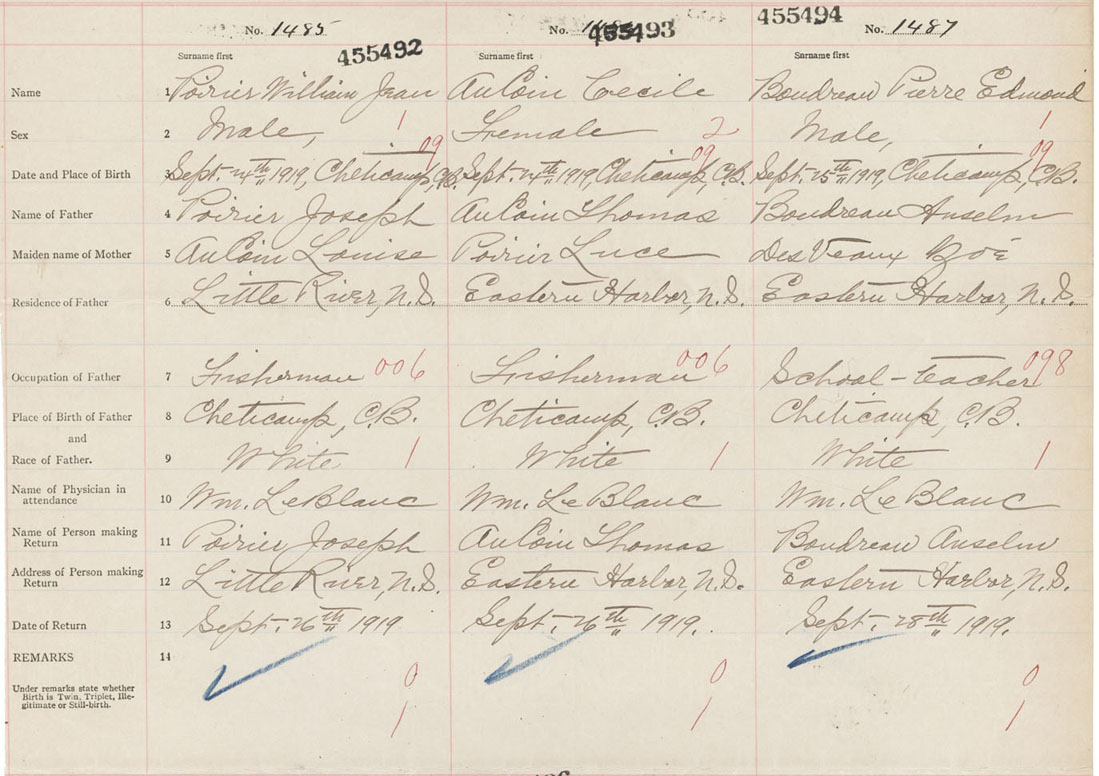 No. 1485 No. 455493 455494 No. 1487
Surname first 455492 Surname first Surname first
Name 1 Poirier William Jean AuCoin Cecile Boudreau Pierre Edmond
Sex 2 Male, 1 Female 2 Male, 1
09 09 09
Date and Place of Birth 3 Sept. 24th 1919, Cheticamp, C.B. Sept. 24th 1919, Cheticamp, C.B. Sept. 25th 1919, Cheticamp, C.B.
Name of Father 4 Poirier Joseph AuCoin Thomas Boudreau Anselm
Maiden name of Mother 5 AuCoin Louise Poirier Luce DesVeaux Zoé
Residence of Father 6 Little River, N.S. Eastern Harbor, N.S. Eastern Harbor, N.S.
Occupation of Father 7 Fisherman 006 Fisherman 006 School-teacher 098
Place of Birth of Father 8 Cheticamp, C.B. Cheticamp, C.B. Cheticamp, C.B.
and
Race of Father. 9 White 1 White 1 White 1
Name of Physician in
attendance 10 Wm. LeBlanc Wm. LeBlanc Wm. LeBlanc
Name of Person making
Return 11 Poirier Joseph AuCoin Thomas Boudreau Anselm
Address of Person making
Return 12 Little River, N.S. Eastern Harbor, N.S. Eastern Harbor, N.S.
Date of Return 13 Sept. 26th 1919 Sept. 26th 1919. Sept. 28th 1919.
REMARKS 14
Under remarks state whether 0 0 0
Birth is Twin, Triplet, Ille-
gitimate or Still-birth. 1 1 1